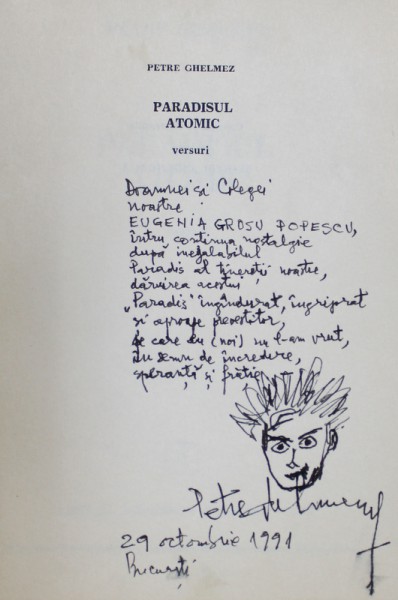 PETRE GHELMEZ
PARADISUL
ATOMIC
versuri
Doamnei și Colegei
noastre
EUGENIA GROSU POPESCU,
întru continua nostalgie
după inegalabilul
Paradis al tinereții noastre,
dăruirea acestui
„Paradis" îngândurat, îngrijorat
și aproape
pe care eu (noi) nu l-am vrut,
în semn de încredere,
speranță și frăție
Petre Ghelmez
29 octombrie 1991
București